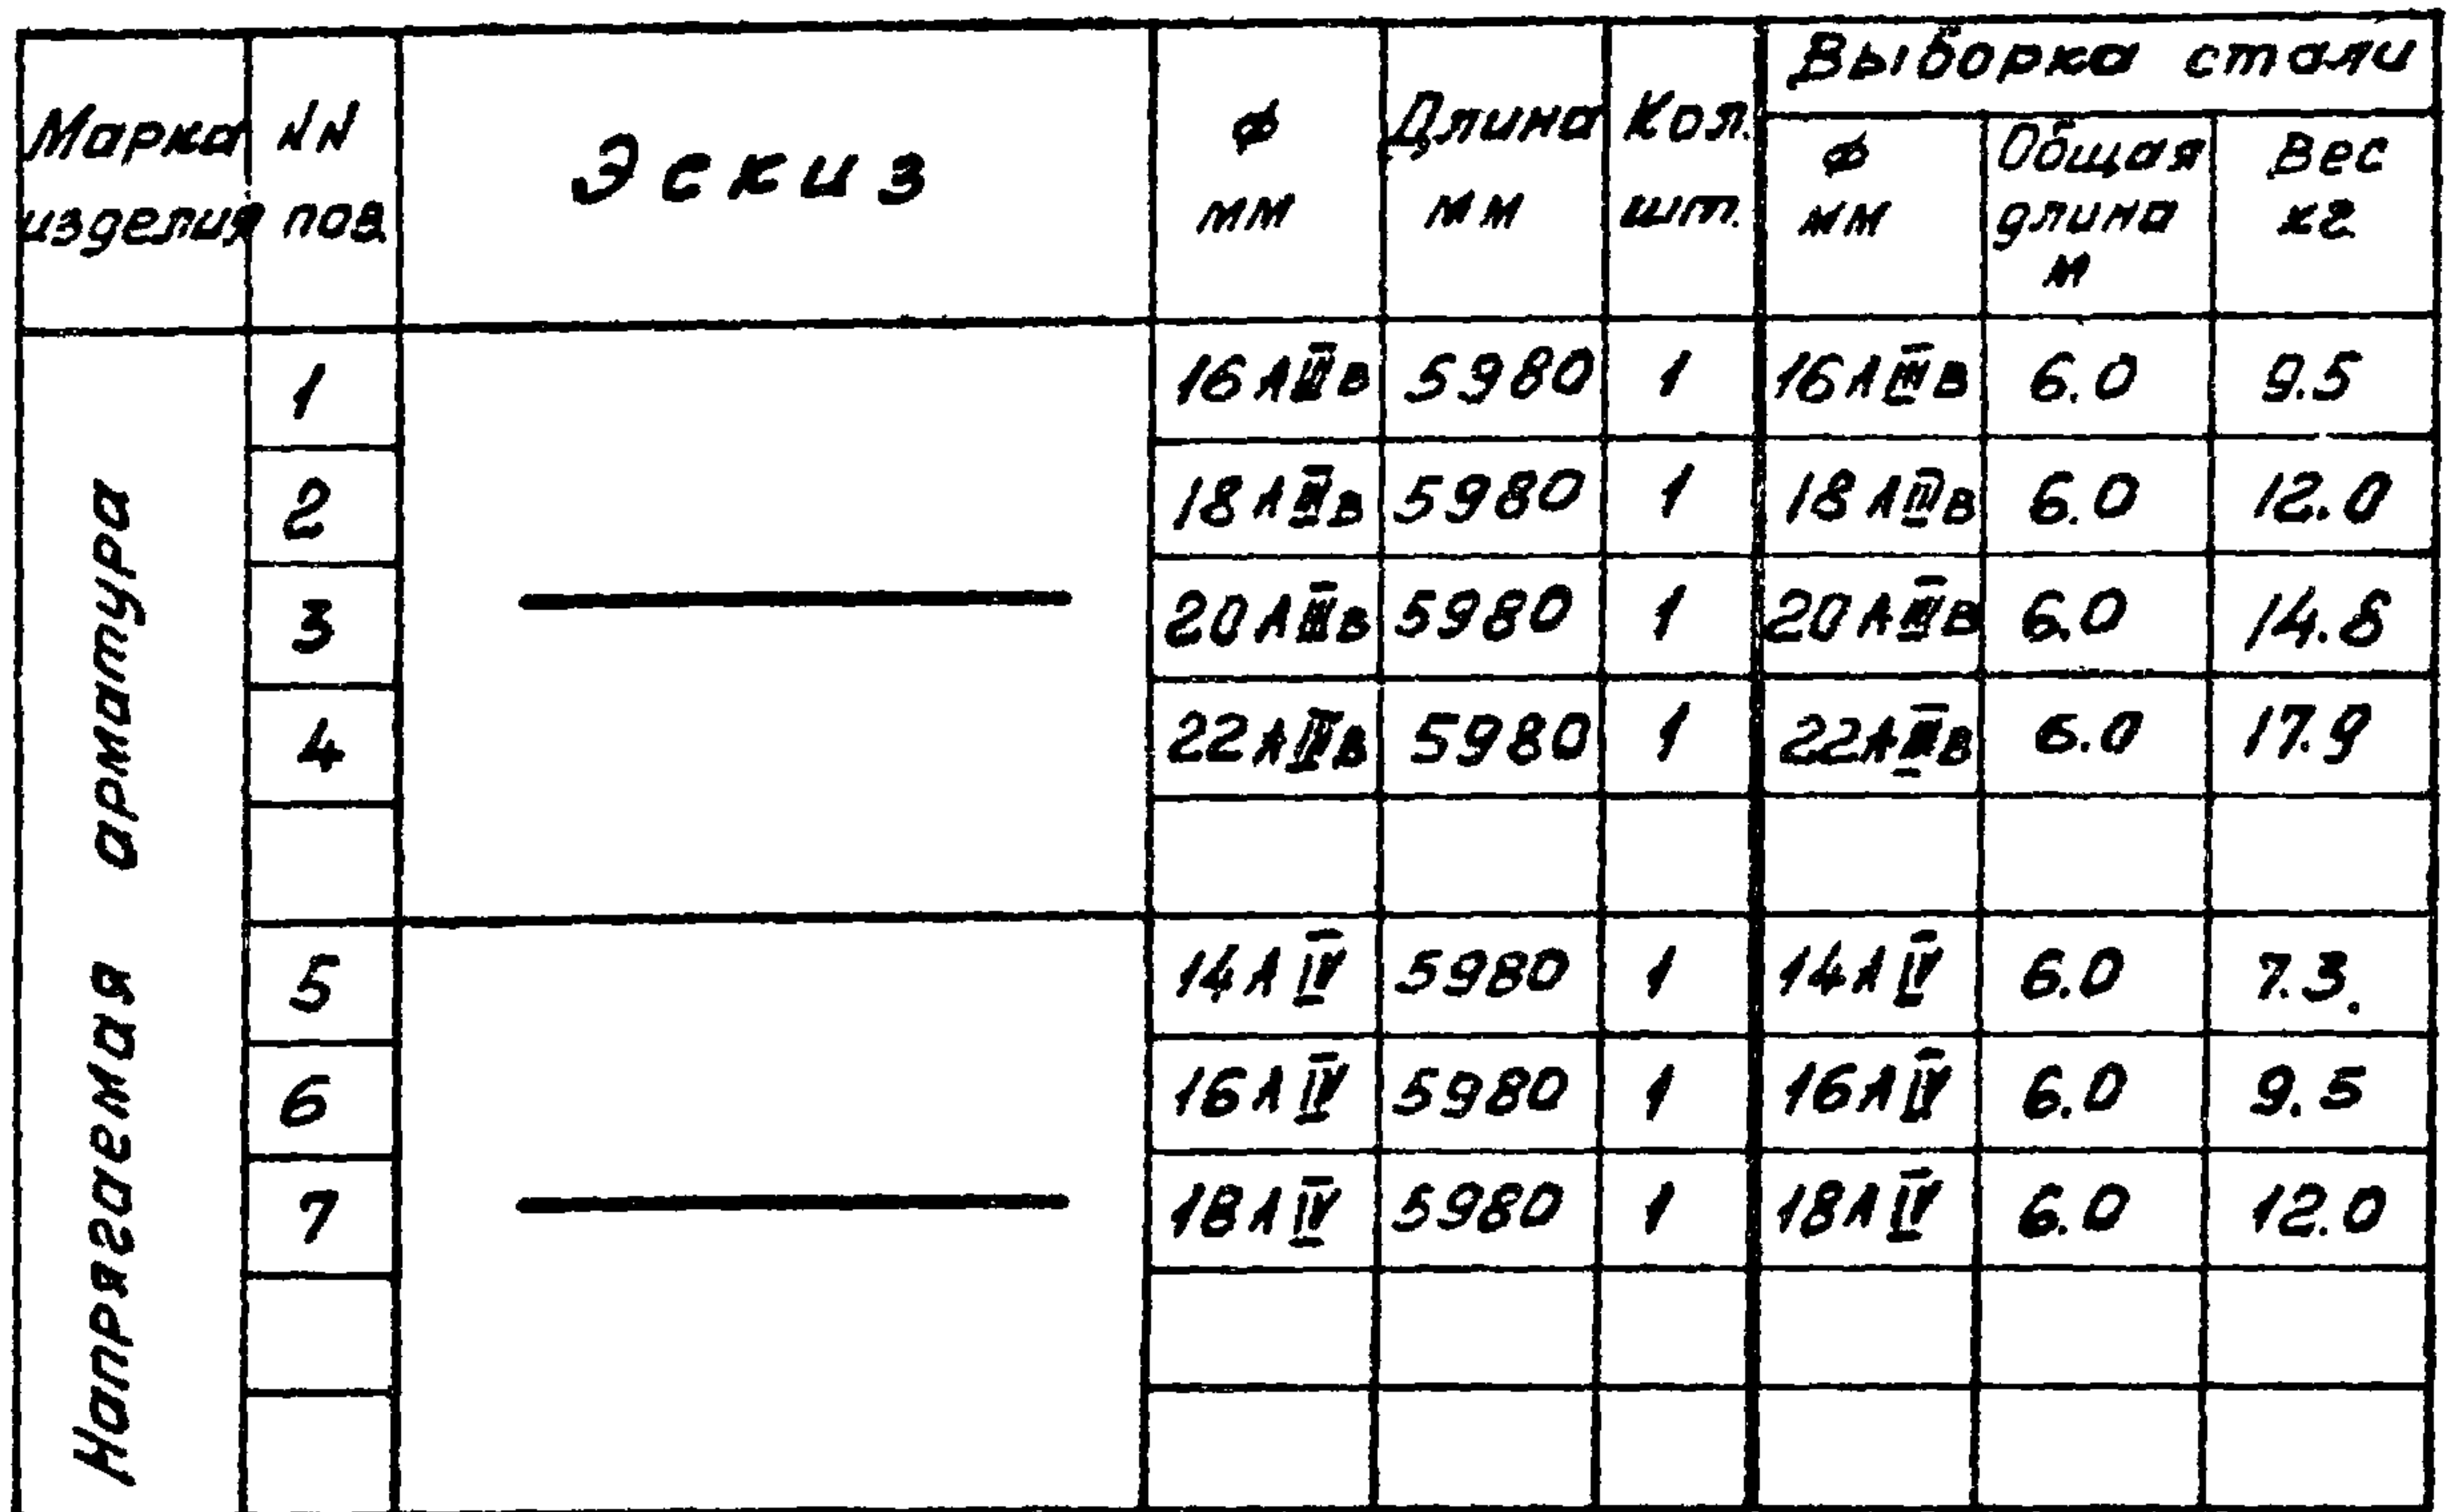 Марка изделия NN поз Эскиз ф мм Длина мм Кол. шт. Выборка стали ф мм Общая длина м Вес кг
Напрягаемая арматура
1 16АIIIв 5980 1 16АIIIв 6.0 9.5
2 18АIIIв 5980 1 18АIIIв 6.0 12.0
3 20АIIIв 5980 1 20АIIIв 6.0 14.8
4 22АIIIв 5980 1 22АIIIв 6.0 17.9
5 14АIV 5980 1 14АIV 6.0 7.3.
6 16АIV 5980 1 16АIV 6.0 9.5
7 18АIV 5980 1 18АIV 6.0 12.0